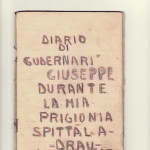 DIARIO
DI
GUDERNARI
GIUSEPPE
DURANTE
LA MIA
PRIGIONIA
SPITTAL A-
-DRAU-